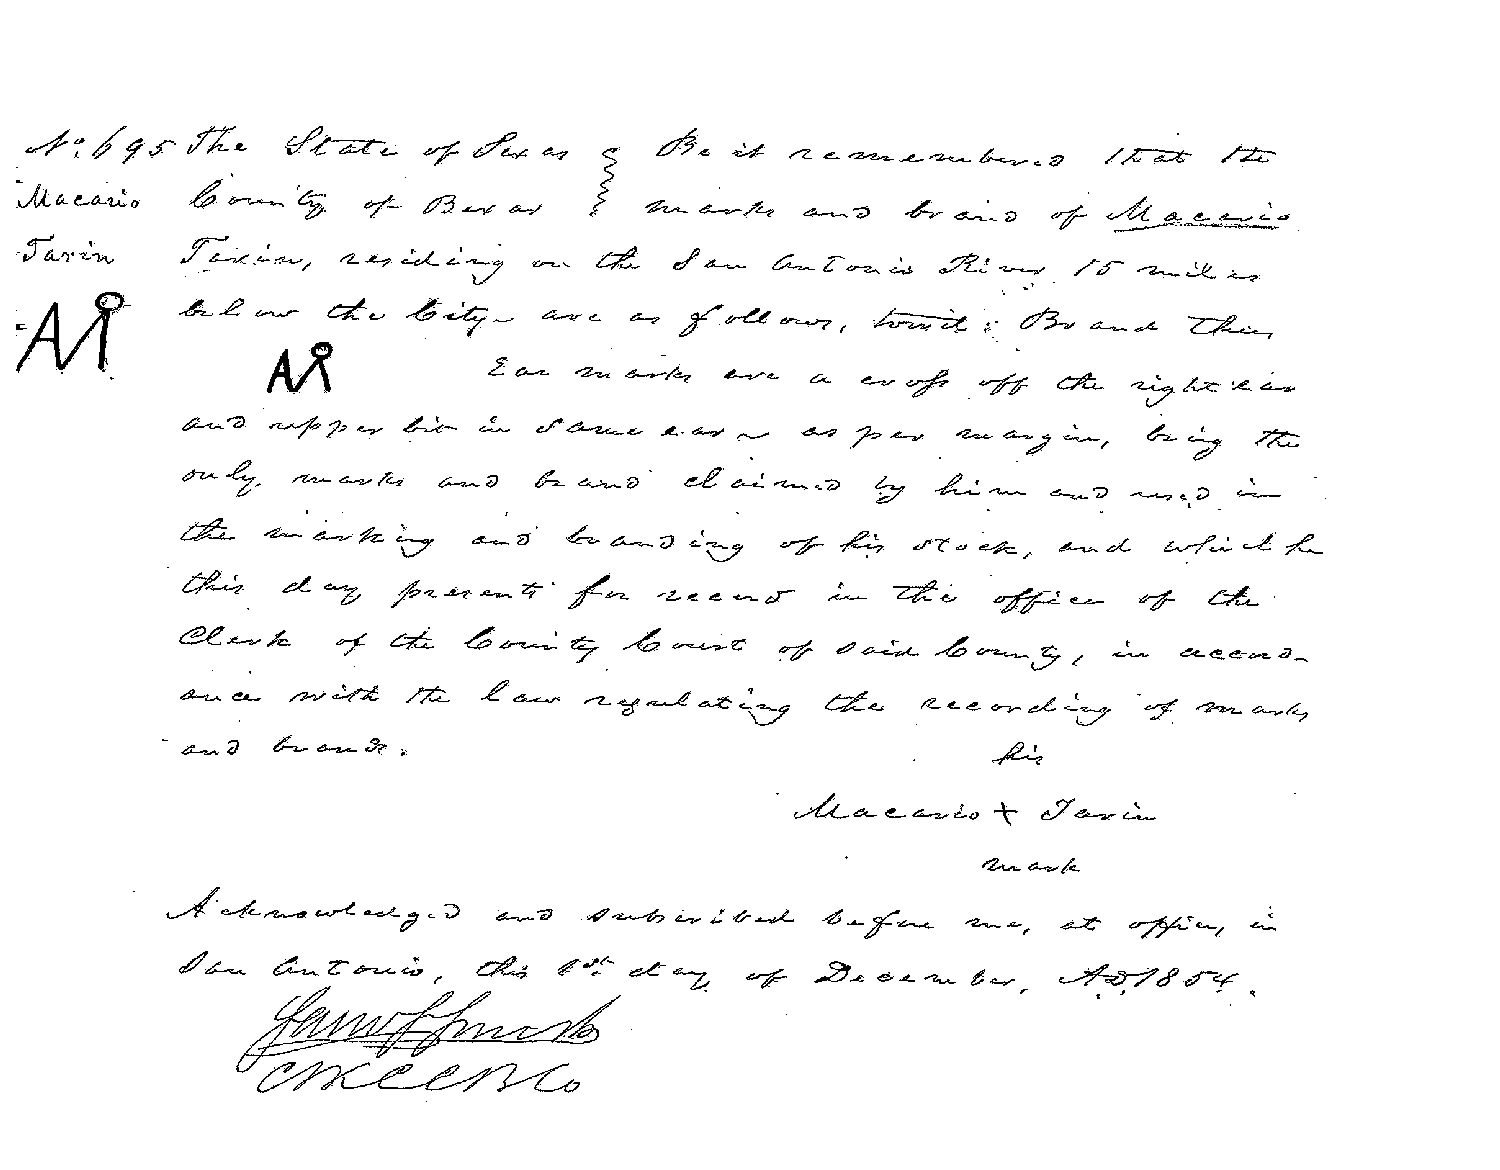 No. 695 The State of Texas Be it remembered that the
Macario County of Bexar marks and brand of Macario
Tarin Tarin, residing on the San Antonio River 15 miles
below the City are as follows, towit: Brand thus
Ear marks are a cross off the right ear
and upper bit in same ear as per margin, being the
only marks and brand claimed by him and used in
the marking and branding of his stock, and which he
this day presents for record in the office of the
Clerk of the County Court of said County, in accord-
ance with the law regulating the recording of marks
and brands.
his
Macario + Tarin
mark
Acknowledged and subscribed before me, at office, in
San Antonio, this 1st day of December, AD. 1854.
CKCCBCo